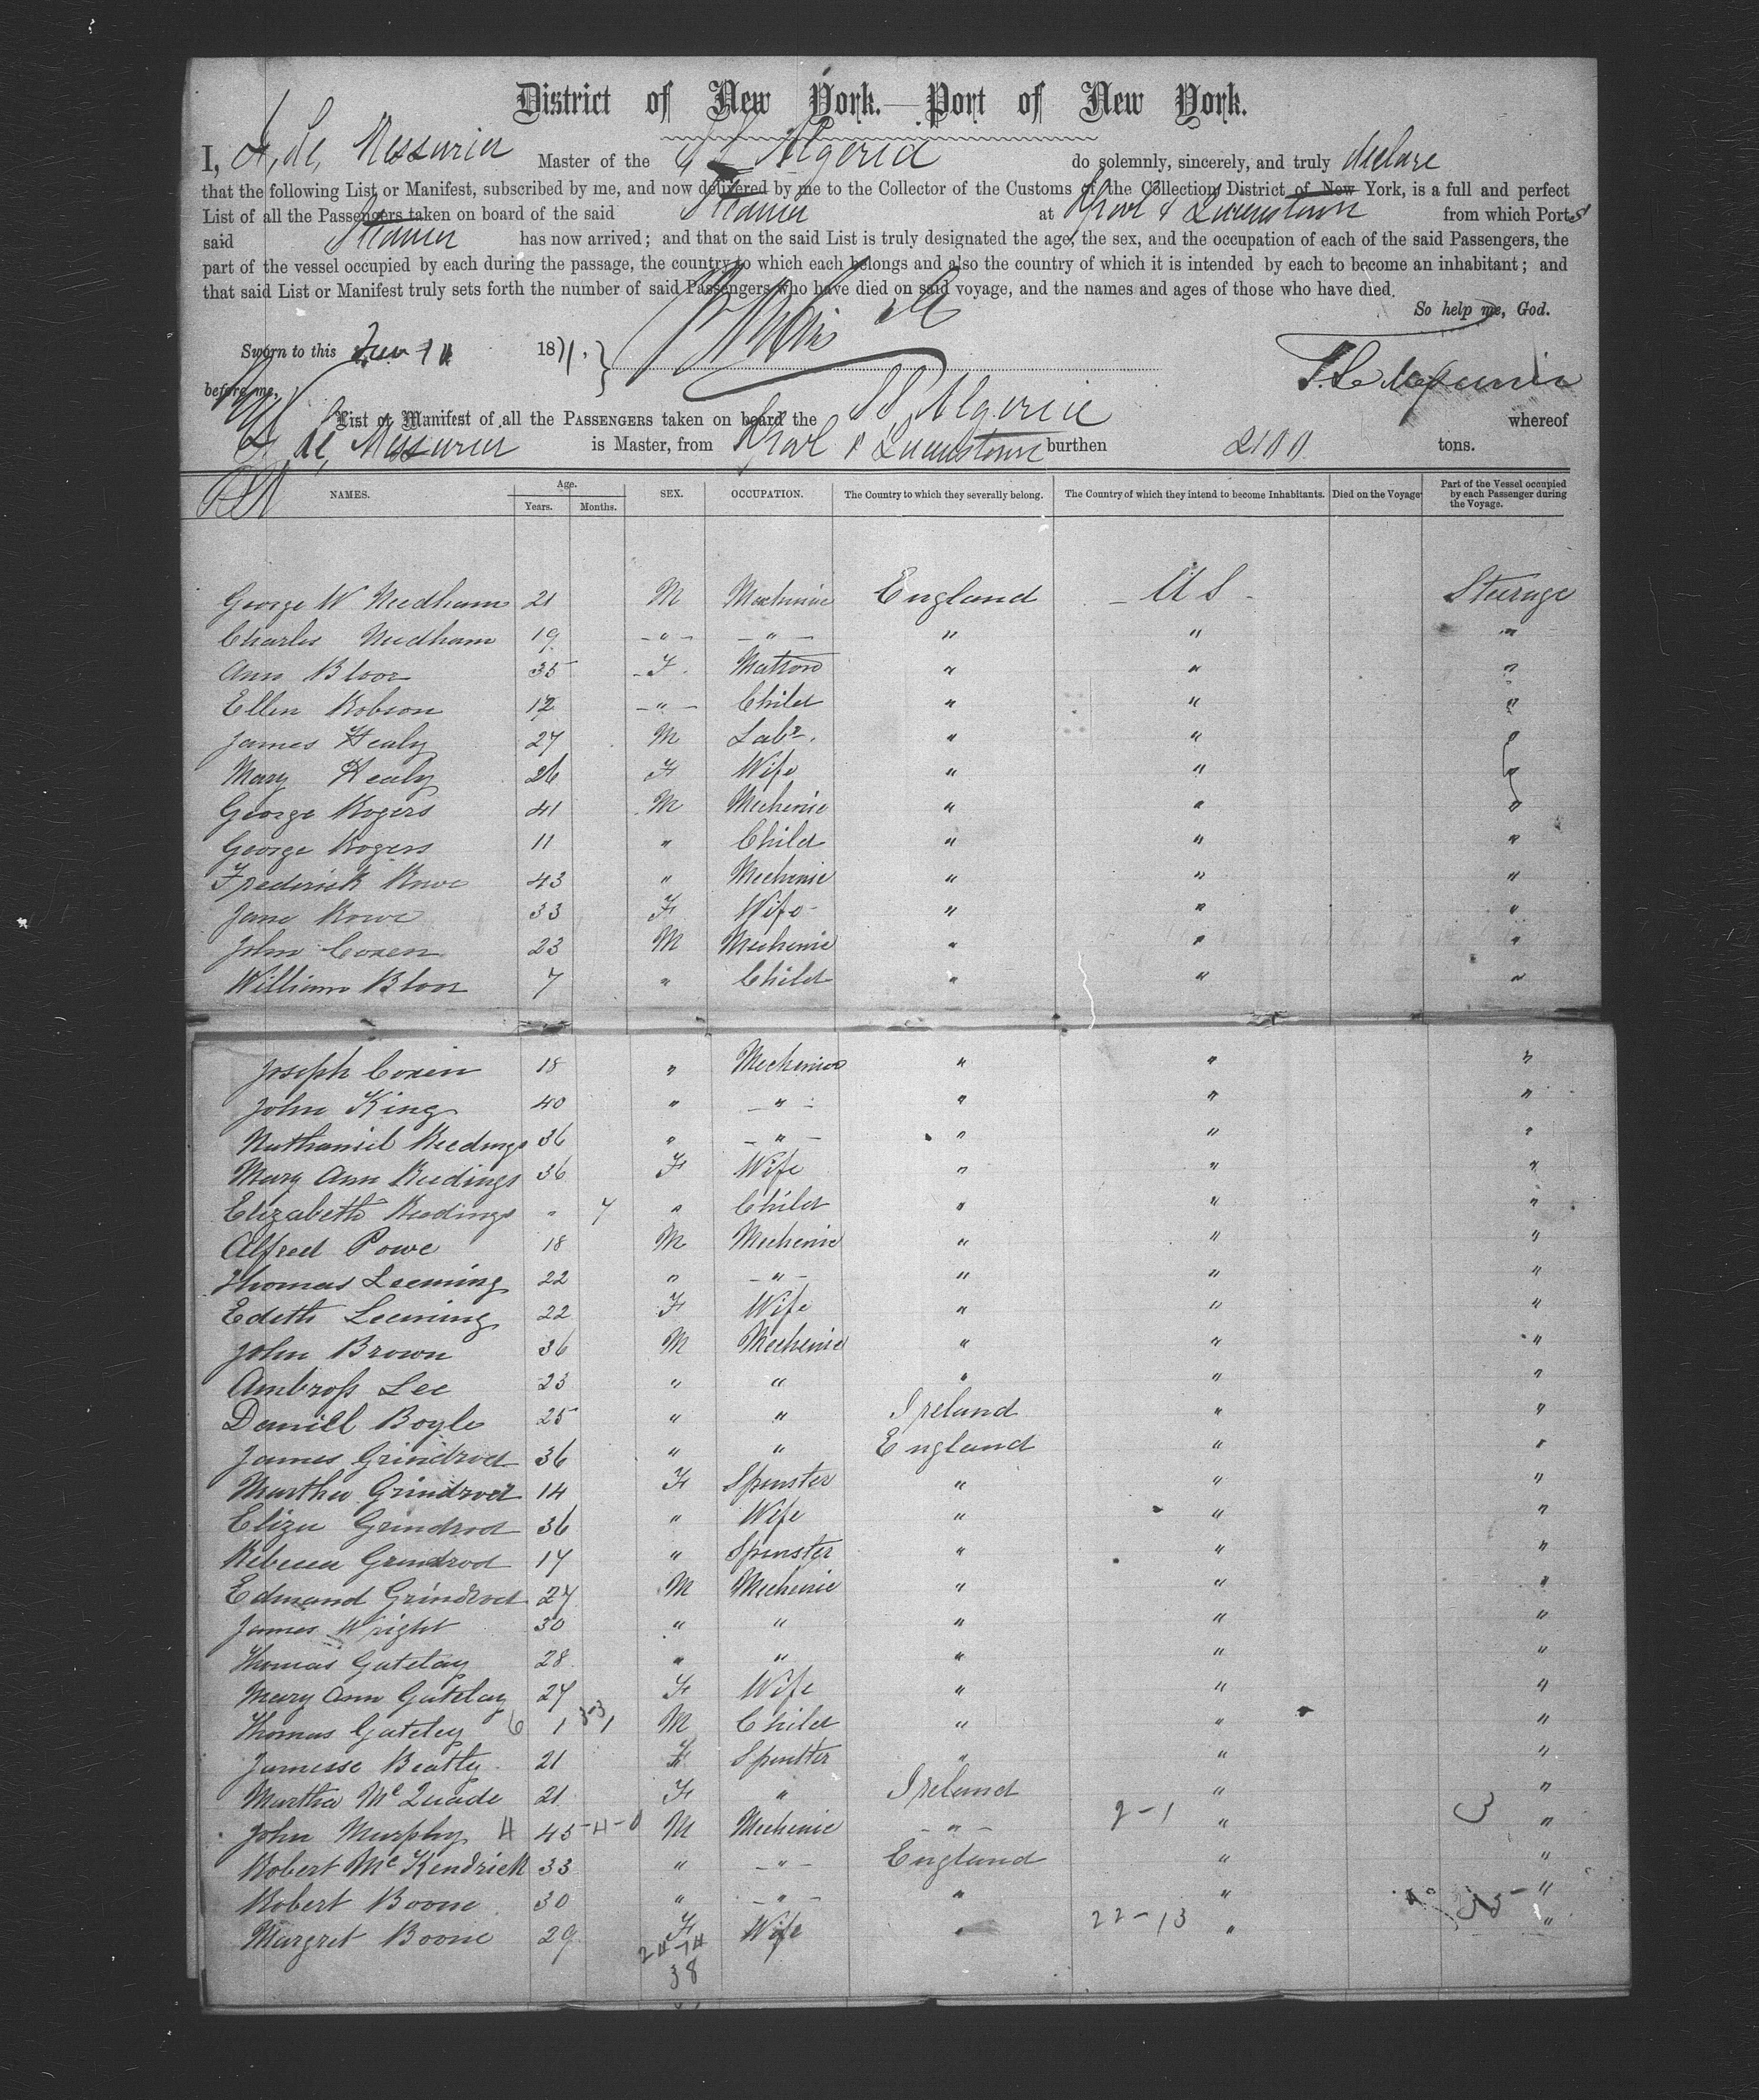 District of New York.—Port of New York.
I, Le Messurier Master of the SS Algeria do solemnly, sincerely, and truly declare
that the following List or Manifest, subscribed by me, and now delivered by me to the Collector of the Customs of the Collection District of New York, is a full and perfect
List of all the Passengers taken on board of the said Steamer at Lpool & Queenstown from which Ports
said Steamer has now arrived; and that on the said List is truly designated the age, the sex, and the occupation of each of the said Passengers, the
part of the vessel occupied by each during the passage, the country to which each belongs and also the country of which it is intended by each to become an inhabitant; and
that said List or Manifest truly sets forth the number of said Passengers who have died on said voyage, and the names and ages of those who have died.
So help me, God.
Sworn to this 1871.
before me,
List or Manifest of all the PASSENGERS taken on board the SS Algeria whereof
Le Messurier is Master, from Lpool & Queenstown burthen tons.
NAMES. Age. Years. Months. SEX. OCCUPATION. The Country to which they severally belong. The Country of which they intend to become Inhabitants. Died on the Voyage Part of the Vessel occupied by each Passenger during the Voyage.
George W Needham 21 M Mechenic England - U S - Steerage
Charles Needham 19 - " - - " - " " "
Ann Bloor 35 F Matron " " "
Ellen Robson 12 - " - Child " " "
James Healy 27 M Labr. " " "
Mary Healy 26 F Wife " " "
George Rogers 41 M Mechenic " " "
George Rogers 11 " Child " " "
Frederick Rowe 43 " Mechenic " " "
Jane Rowe 33 F Wife " " "
John Coxen 23 M Mechenic " " "
William Bloor 7 " Child " " "
Joseph Coxen 18 " Mechenic " " "
John King 40 " - " - " " "
Nathaniel Reedings 36 " - " - " " "
Mary Ann Reedings 36 F Wife " " "
Elizabeth Reedings " 7 " Child " " "
Alfred Powe 18 M Mechenic " " "
Thomas Leeming 22 " - " - " " "
Edeth Leeming 22 F Wife " " "
John Brown 36 M Mechenic " " "
Ambross Lee 23 " " " " "
Daniel Boyle 25 " " Ireland " "
James Grindrod 36 " " England " "
Martha Grindrod 14 F Spinster " " "
Eliza Grindrod 36 " Wife " " "
Rebecca Grindrod 17 " Spinster " " "
Edmand Grindrod 27 M Mechenic " " "
James Wright 30 " " " " "
Thomas Gateley 28 " " " " "
Mary Ann Gateley 27 F Wife " " "
Thomas Gateley 6 1 3-3 1 M Child " " "
Jamesse Beatty 21 F Spinster " " "
Martha McQuade 21 F " Ireland " "
John Murphy 4 45 -4-0 M Mechenic - " - 2-1 " 3 "
Robert McKendrick 33 " - " - England " "
Robert Boone 30 " - " - " " "
Margret Boone 29 F Wife " 22-13 " "
24-14
38